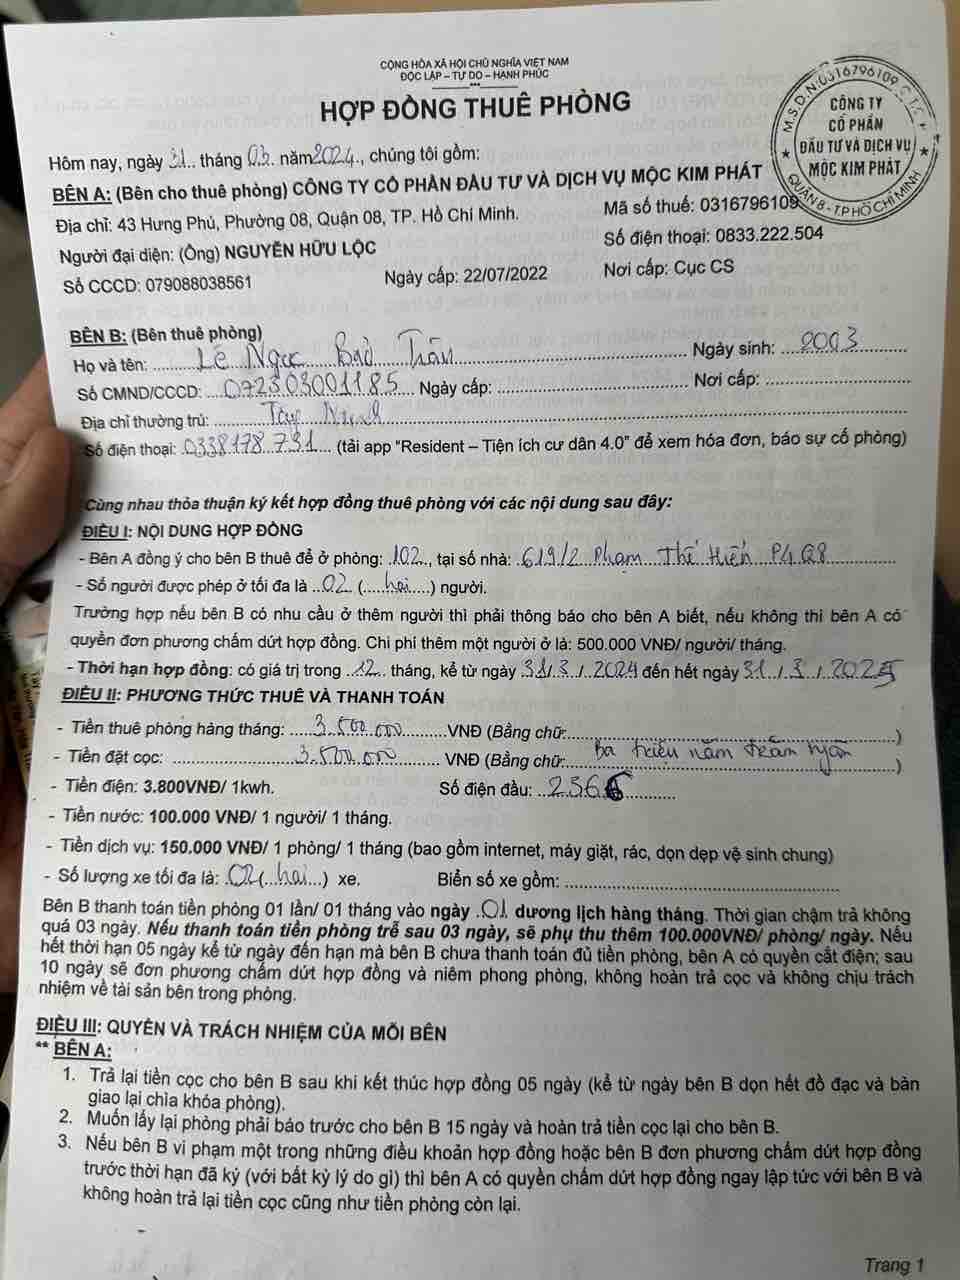 CỘNG HÒA XÃ HỘI CHỦ NGHĨA VIỆT NAM
ĐỘC LẬP – TỰ DO – HẠNH PHÚC
HỢP ĐỒNG THUÊ PHÒNG
M.S.D.N:0316796109
CÔNG TY
CỔ PHẦN
ĐẦU TƯ VÀ DỊCH VỤ
MỘC KIM PHÁT
QUẬN 8 - T.P HỒ CHÍ MINH
Hôm nay, ngày 31 tháng 03 năm 2024, chúng tôi gồm:
BÊN A: (Bên cho thuê phòng) CÔNG TY CỔ PHẦN ĐẦU TƯ VÀ DỊCH VỤ MỘC KIM PHÁT
Địa chỉ: 43 Hưng Phú, Phường 08, Quận 08, TP. Hồ Chí Minh. Mã số thuế: 0316796109
Người đại diện: (Ông) NGUYỄN HỮU LỘC Số điện thoại: 0833.222.504
Số CCCD: 079088038561 Ngày cấp: 22/07/2022 Nơi cấp: Cục CS
BÊN B: (Bên thuê phòng)
Họ và tên: Lê Ngọc Bảo Trân Ngày sinh: 2003
Số CMND/CCCD: 072303001185 Ngày cấp: Nơi cấp:
Địa chỉ thường trú: Tây Ninh
Số điện thoại: 0338178731 (tải app "Resident – Tiện ích cư dân 4.0" để xem hóa đơn, báo sự cố phòng)
Cùng nhau thỏa thuận ký kết hợp đồng thuê phòng với các nội dung sau đây:
ĐIỀU I: NỘI DUNG HỢP ĐỒNG
- Bên A đồng ý cho bên B thuê để ở phòng: 102, tại số nhà: 619/2 Phạm Thế Hiển P4 Q8
- Số người được phép ở tối đa là 02 (hai) người.
Trường hợp nếu bên B có nhu cầu ở thêm người thì phải thông báo cho bên A biết, nếu không thì bên A có
quyền đơn phương chấm dứt hợp đồng. Chi phí thêm một người ở là: 500.000 VNĐ/ người/ tháng.
- Thời hạn hợp đồng: có giá trị trong 12 tháng, kể từ ngày 31/3/2024 đến hết ngày 31/3/2025
ĐIỀU II: PHƯƠNG THỨC THUÊ VÀ THANH TOÁN
- Tiền thuê phòng hàng tháng: 3.500.000 VNĐ (Bằng chữ: )
- Tiền đặt cọc: 3.500.000 VNĐ (Bằng chữ: Ba triệu năm trăm ngàn)
- Tiền điện: 3.800VNĐ/ 1kwh. Số điện đầu: 2566
- Tiền nước: 100.000 VNĐ/ 1 người/ 1 tháng.
- Tiền dịch vụ: 150.000 VNĐ/ 1 phòng/ 1 tháng (bao gồm internet, máy giặt, rác, dọn dẹp vệ sinh chung)
- Số lượng xe tối đa là: 02 (hai) xe. Biển số xe gồm:
Bên B thanh toán tiền phòng 01 lần/ 01 tháng vào ngày 01 dương lịch hàng tháng. Thời gian chậm trả không
quá 03 ngày. Nếu thanh toán tiền phòng trễ sau 03 ngày, sẽ phụ thu thêm 100.000VNĐ/ phòng/ ngày. Nếu
hết thời hạn 05 ngày kể từ ngày đến hạn mà bên B chưa thanh toán đủ tiền phòng, bên A có quyền cắt điện; sau
10 ngày sẽ đơn phương chấm dứt hợp đồng và niêm phong phòng, không hoàn trả cọc và không chịu trách
nhiệm về tài sản bên trong phòng.
ĐIỀU III: QUYỀN VÀ TRÁCH NHIỆM CỦA MỖI BÊN
** BÊN A:
1. Trả lại tiền cọc cho bên B sau khi kết thúc hợp đồng 05 ngày (kể từ ngày bên B dọn hết đồ đạc và bàn
giao lại chìa khóa phòng).
2. Muốn lấy lại phòng phải báo trước cho bên B 15 ngày và hoàn trả tiền cọc lại cho bên B.
3. Nếu bên B vi phạm một trong những điều khoản hợp đồng hoặc bên B đơn phương chấm dứt hợp đồng
trước thời hạn đã ký (với bất kỳ lý do gì) thì bên A có quyền chấm dứt hợp đồng ngay lập tức với bên B và
không hoàn trả lại tiền cọc cũng như tiền phòng còn lại.
Trang 1